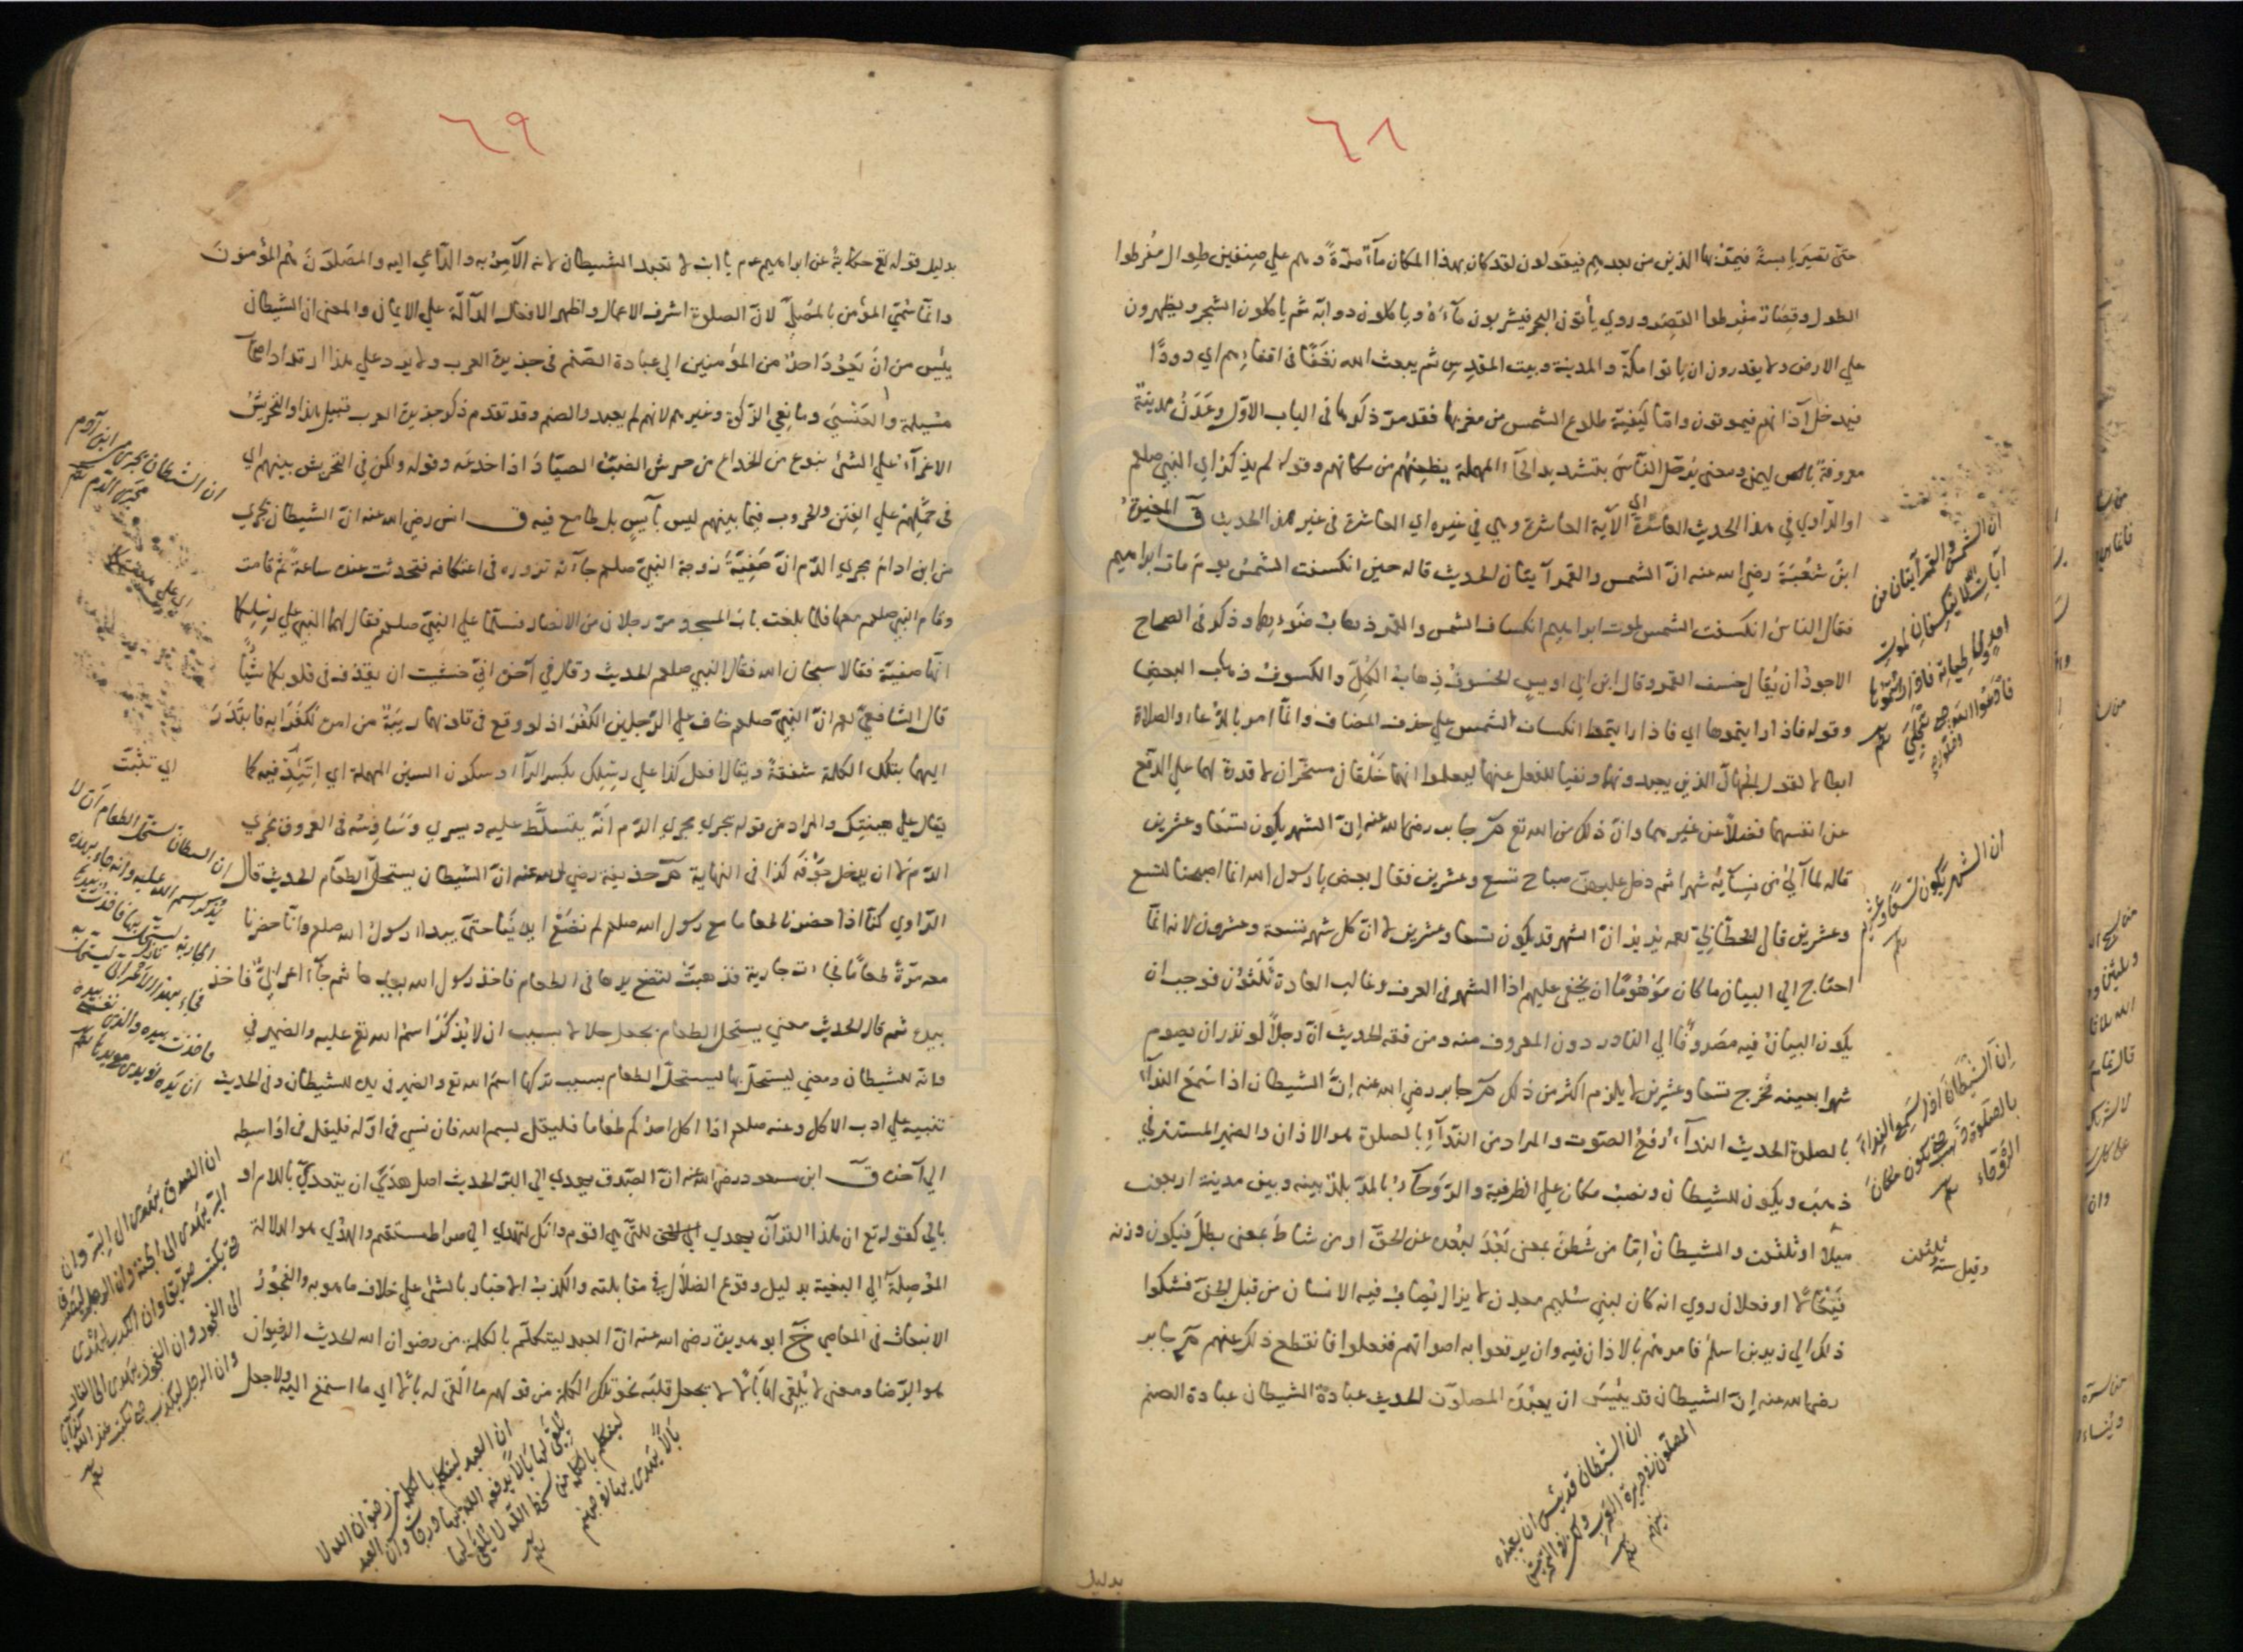 ٦٨
حتى تصير يابسة فيمر بها الذين من بعدهم فيقولون لقد كان بهذا المكان مآء مرّةً وهم على صنفين طوال مفرطوا
الطول وقصار مفرطوا القصر وروي يأتون البحر فيشربون مآءه وياكلون دوابه ثم ياكلون الشجر ويظهرون
على الارض ولا يقدرون ان ياتوا مكة والمدينة وبيت المقدس ثم يبعث الله نغفا في اقفائهم اي دودًا
فيدخل آذانهم فيموتون وامّا كيفية طلوع الشمس من مغربها فقد مرّ ذكرها في الباب الاوّل وعدن مدينة
معروفة باليمن ومعنى يرحّل النّاس بتشديد الحآء المهملة يظعنهم من مكانهم وقوله لم يذكر اي النبي صلعم
او الرّاوي في هذا الحديث العاشرة اي الآية العاشرة وهي في غيره اي العاشرة في غير هذا الحديث ق المغيرة
ابن شعبة رضي الله عنه انّ الشمس والقمر آيتان الحديث قاله حين انكسفت الشمس يوم مات ابراهيم
فقال الناس انكسفت الشمس لموت ابراهيم انكساف الشمس والقمر ذهاب ضوءهما وذكر في الصحاح
الاجود ان يقال خسف القمر وقال ابن ابي اويس الخسوف ذهاب الكل والكسوف ذهاب البعض
وقوله فاذا رايتموها اي فاذا رايتموا انكساف الشمس على حذف المضاف وانّما امر بالدّعاء والصلاة
ابطالا لقول الجهّال الذين يعبدونهما ونفيا للفعل عنهما ليعلموا انهما خلقان مسخّران لا قدرة لهما على الدفع
عن انفسهما فضلاً عن غيرهما وانّ ذلك من الله تع مر جابر رضي الله عنه انّ الشهر يكون تسعا وعشرين
قاله لما آلى من نسآئه شهرا ثم دخل عليهنّ صباح تسع وعشرين فقال بعض يا رسول الله انما اصبحنا لتسع
وعشرين قال الخطّابي رحمه يريد انّ الشهر قد يكون تسعا وعشرين لا انّ كل شهر تسعة وعشرون لانه انما
احتاج الى البيان ما كان موهوما ان يخفى عليهم اذ الشهر في العرف وغالب العادة ثلثون فوجب ان
يكون البيان فيه مصروفًا الى النادر دون المعروف منه ومن فقه الحديث انّ رجلاً لو نذر ان يصوم
شهرا بعينه فخرج تسعا وعشرين لا يلزم اكثر من ذلك مر جابر رضي الله عنه انّ الشيطان اذا سمع النداء
بالصلوة الحديث الندآء رفع الصّوت والمراد من الندآء بالصلوة هو الاذان والضمير المستتر في
ذهب ويكون للشيطان ونصب مكان على الظرفية والرّوحآء بالمدّ بلدة بينه وبين مدينة اربعون
ميلا او ثلثون والشيطان اما من شطن بمعنى بعد لبعده عن الحق او من شاط بمعنى بطل فيكون وزنه
فيعالا او فعلان روي انه كان لبني سليم معدن لا يزال يصاب فيه الانسان من قبل الجن فشكوا
ذلك الى زيد بن اسلم فامرهم بالاذان فيه وان يرفعوا به اصواتهم ففعلوا فانقطع ذلك عنهم مر جابر
رضي الله عنه انّ الشيطان قد يئس ان يعبده المصلون الحديث عبادة الشيطان عبادة الصنم
ان الشمس والقمر آيتان من
آيات الله لا ينكسفان لموت
احدٍ ولا لحياته فاذا رايتموها
فادعوا الله حتى تنجلي
ان الشهر يكون تسعا وعشرين
انّ الشيطان اذا سمع النداء
بالصلوة ذهب حتى يكون مكان
الروحاء
وقيل ستة وثلثون
ان الشيطان قد يئس ان يعبده
المصلّون في جزيرة العرب ولكن في التحريش
بينهم
بدليل
٦٩
بدليل قوله تع حكايةً عن ابراهيم عم يا ابت لا تعبد الشيطان لانه الآمر به والدّاعي اليه والمصلّون هم المؤمنون
وانما سمّي المؤمن بالمصلّي لانّ الصلوة اشرف الاعمال واظهر الافعال الدآلّة على الايمان والمعنى ان الشيطان
يئس من ان يعود احد من المؤمنين الى عبادة الصنم في جزيرة العرب ولا يرد على هذا ارتداد اصحاب
مسيلمة والعنسي ومانعي الزكوة وغيرهم لانهم لم يعبدوا الصنم وقد تقدم ذكر جزيرة العرب قبيل هذا والتحريش
الاغرآء على الشئ بنوع من الخداع من حرش الضبّ الصيّاد اذا خدعه وقوله ولكن في التحريش بينهم اي
في حملهم على الفتن والحروب فيما بينهم ليس بآيس بل طامع فيه ق انس رضي الله عنه انّ الشيطان يجري
من ابن ادم مجرى الدّم انّ صفيّة زوجة النبيّ صلعم جآءته تزوره في اعتكافه فتحدثت عنده ساعة ثم قامت
وقام النبي صلعم معها فلما بلغت باب المسجد مرّ رجلان من الانصار فسلّما على النبي صلعم فقال لهما النبي على رسلكما
انها صفية فقالا سبحان الله فقال النبي صلعم الحديث وقال في آخره اني خشيت ان يقذف في قلوبكما شيئًا
قال الشافعي رحمه انّ النبيّ صلعم خاف على الرّجلين الكفر اذ لو وقع في قلوبهما ريبة من امره لكفرا به فابتدر
اليهما بتلك الكلمة شفقة ويقال افعل كذا على رسلك بكسر الرآء وسكون السين المهملة اي اتئد فيه كما
يقال على هينتك والمراد من قوله يجري مجرى الدّم انّه يتسلّط عليه ويسري وساوسه في العروق مجرى
الدّم لا ان يدخل جوفه كذا في النهاية مر حذيفة رضي الله عنه انّ الشيطان يستحلّ الطعام الحديث قال
الرّاوي كنّا اذا حضرنا طعاما مع رسول الله صلعم لم نضع ايدينا حتى يبدأ رسول الله صلعم وانا حضرنا
معه مرّةً طعامًا فجاءت جارية فذهبت لتضع يدها في الطعام فاخذ رسول الله بيدها ثم جآء اعرابيّ فاخذ
بيده ثم قال الحديث معنى يستحل الطعام يجعل حلالا بسبب ان لا يذكر اسم الله تع عليه والضمير في
وانه للشيطان ومعنى ليستحلّ بها ليستحلّ الطعام بسبب تركها اسم الله تع والضمير في يده للشيطان وفي الحديث
تنبيه على ادب الاكل وعنه صلعم اذا اكل احدكم طعاما فليقل بسم الله فان نسي في اوّله فليقل في اواسطه
الى آخره ق ابن مسعود رضي الله عنه انّ الصّدق يهدي الى البرّ الحديث اصل هدى ان يتعدى باللام او
بالى كقوله تع ان هذا القرآن يهدي للتي هي اقوم وانك لتهدي الى صراط مستقيم والهدى هو الدلالة
الموصلة الى البغية بدليل وقوع الضلال في مقابلته والكذب الاخبار بالشئ على خلاف ما هو به والفجور
الانبعاث في المعاصي خ ابو هريرة رضي الله عنه انّ العبد ليتكلّم بالكلمة من رضوان الله الحديث الرضوان
هو الرّضا ومعنى لا يلقي لها بالا لا يجعل قلبه نحو تلك الكلمة من قولهم ما القى له بالا اي ما استمع اليه ولا جعل
ان الشيطان يجري من ابن آدم
مجرى الدّم
اي على هينتكما
اي تثبت
ان الشيطان يستحل الطعام ان لا
يذكر اسم الله عليه وانه جاء بهذه
الجارية ليستحل بها فاخذت بيدها
فجاء بهذا الاعرابي ليستحل به
فاخذت بيده والذي نفسي بيده
ان يده في يدي مع يدها
ان الصدق يهدي الى البر وان
البر يهدي الى الجنة وان الرجل ليصدق
حتى يكتب صديقا وان الكذب يهدي
الى الفجور وان الفجور يهدي الى النار
وان الرجل ليكذب حتى يكتب عند الله كذابا
ان العبد ليتكلم بالكلمة من رضوان الله لا
يلقي لها بالا يرفعه الله بها درجات وان العبد
ليتكلم بالكلمة من سخط الله لا يلقي لها
بالا يهوي بها في جهنم